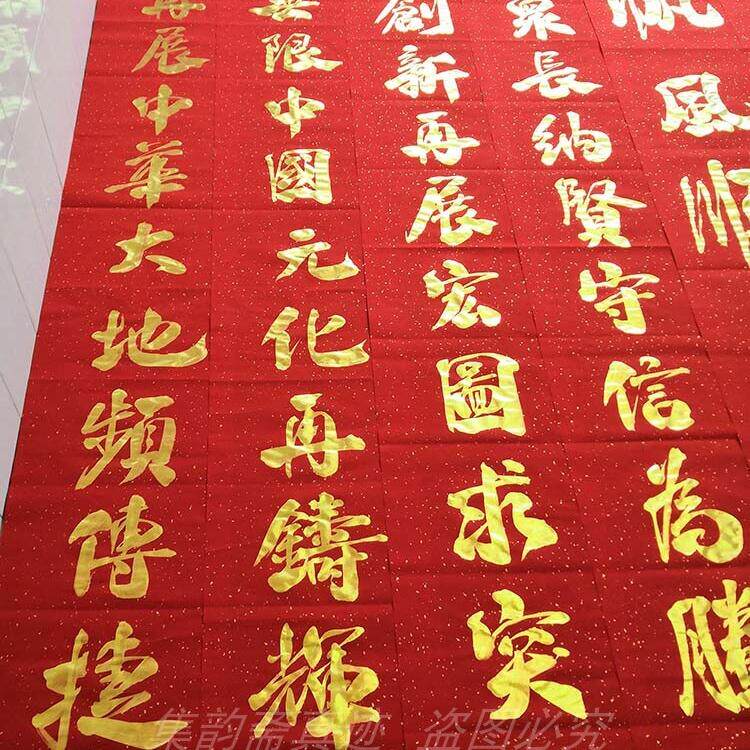 帆風順
眾長納賢守信為勝
創新再展宏圖求突
無限中國元化再鑄輝
再展中華大地頻傳捷
集韵斋真迹 盗图必究